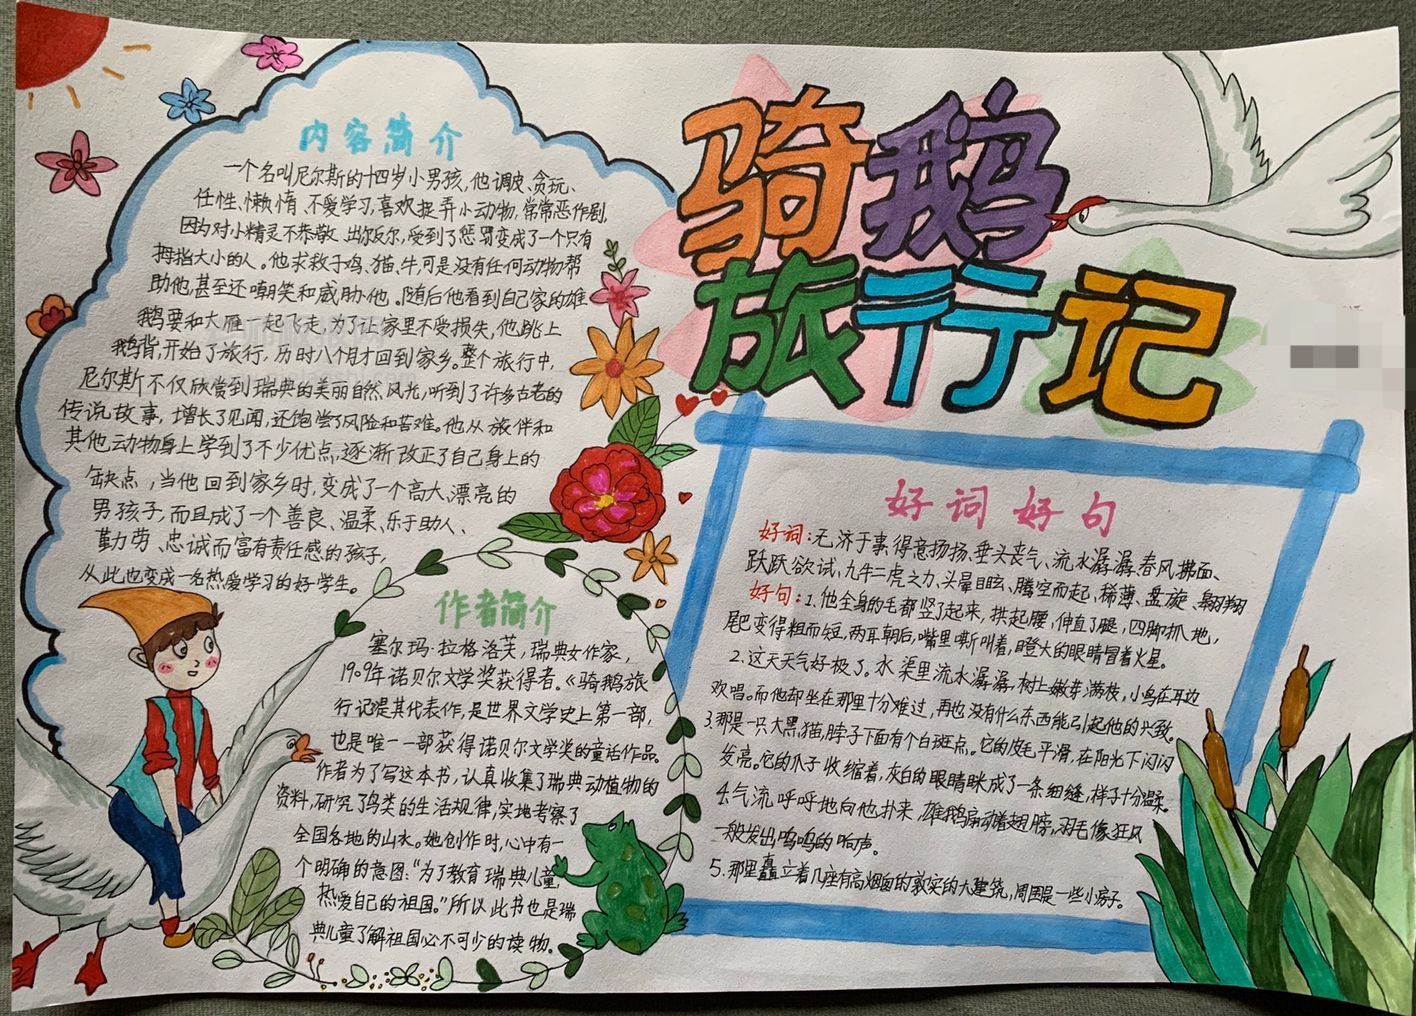 骑鹅
旅行记
内容简介
一个名叫尼尔斯的十四岁小男孩,他调皮、贪玩、
任性、懒惰、不爱学习,喜欢捉弄小动物,常常恶作剧,
因为对小精灵不恭敬、出尔反尔,受到了惩罚变成了一个只有
拇指大小的人。他求救于鸡、猫、牛,可是没有任何动物帮
助他,甚至还嘲笑和威胁他。随后他看到自己家的雄
鹅要和大雁一起飞走,为了让家里不受损失,他跳上
鹅背,开始了旅行,历时八个月才回到家乡。整个旅行中,
尼尔斯不仅欣赏到瑞典的美丽自然风光,听到了许多古老的
传说故事,增长了见闻,还饱尝了风险和苦难。他从旅伴和
其他动物身上学到了不少优点,逐渐改正了自己身上的
缺点,当他回到家乡时,变成了一个高大、漂亮的
男孩子,而且成了一个善良、温柔、乐于助人、
勤劳、忠诚而富有责任感的孩子,
从此也变成一名热爱学习的好学生。
作者简介
塞尔玛·拉格洛芙,瑞典女作家,
1909年诺贝尔文学奖获得者。《骑鹅旅
行记是其代表作,是世界文学史上第一部,
也是唯一一部获得诺贝尔文学奖的童话作品。
作者为了写这本书,认真收集了瑞典动植物的
资料,研究了鸟类的生活规律,实地考察了
全国各地的山水。她创作时,心中有一
个明确的意图:“为了教育瑞典儿童,
热爱自己的祖国。”所以此书也是瑞
典儿童了解祖国必不可少的读物。
好词好句
好词:无济于事、得意扬扬、垂头丧气、流水潺潺、春风拂面、
跃跃欲试、九牛二虎之力、头晕目眩、腾空而起、稀薄、盘旋、翱翔
好句:1.他全身的毛都竖了起来,拱起腰,伸直了腿,四脚抓地,
尾巴变得粗而短,两耳朝后,嘴里嘶叫着,瞪大的眼睛冒着火星。
2.这天天气好极了。水渠里流水潺潺,树上嫩芽满枝,小鸟在耳边
欢唱。而他却坐在那里十分难过,再也没有什么东西能引起他的兴致。
3.那是一只大黑猫,脖子下面有个白斑点。它的皮毛平滑,在阳光下闪闪
发亮。它的爪子收缩着,灰白的眼睛眯成了一条细缝,样子十分温柔。
4.气流呼呼地向他扑来,雄鹅扇动着翅膀,羽毛像狂风
一般发出呜呜的响声。
5.那里矗立着几座有高烟囱的敦实的大建筑,周围是一些小房子。